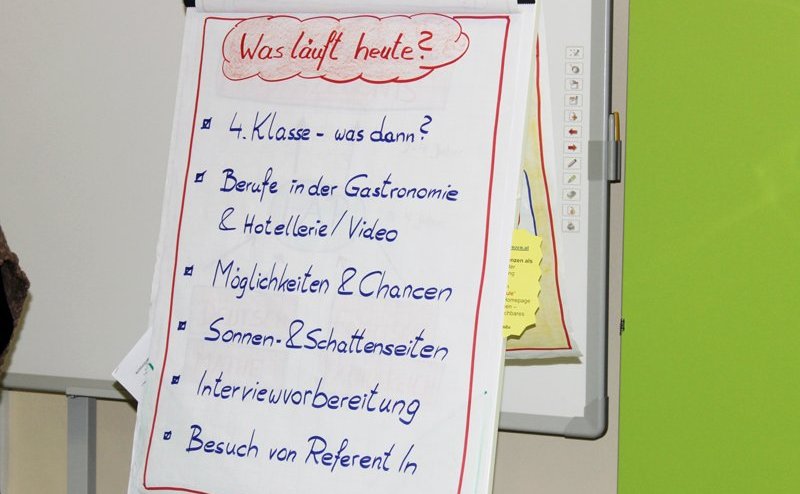 Was läuft heute?
4. Klasse - was dann?
Berufe in der Gastronomie
& Hotellerie / Video
Möglichkeiten & Chancen
Sonnen- & Schattenseiten
Interviewvorbereitung
Besuch von Referent In